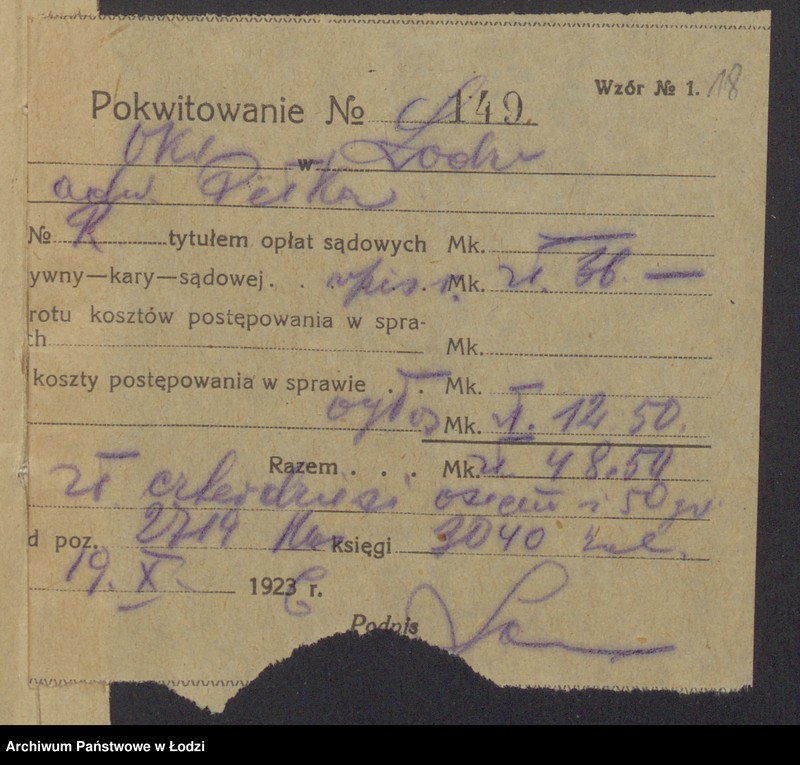 Wzór № 1. 18
Pokwitowanie № 149.
w Łodzi
adw. Pełka
№ K tytułem opłat sądowych Mk. —
ywny—kary—sądowej . . wpis. Mk. zł. 36 —
rotu kosztów postępowania w spra-
ch Mk.
koszty postępowania w sprawie . . Mk.
ogłos Mk. zł. 12.50.
Razem . . . Mk. zł 48.50
zł czterdzieści osiem i 50 gr.
d poz. 2719 księgi 3040
19. X. 1926 r.
Podpis
Archiwum Państwowe w Łodzi